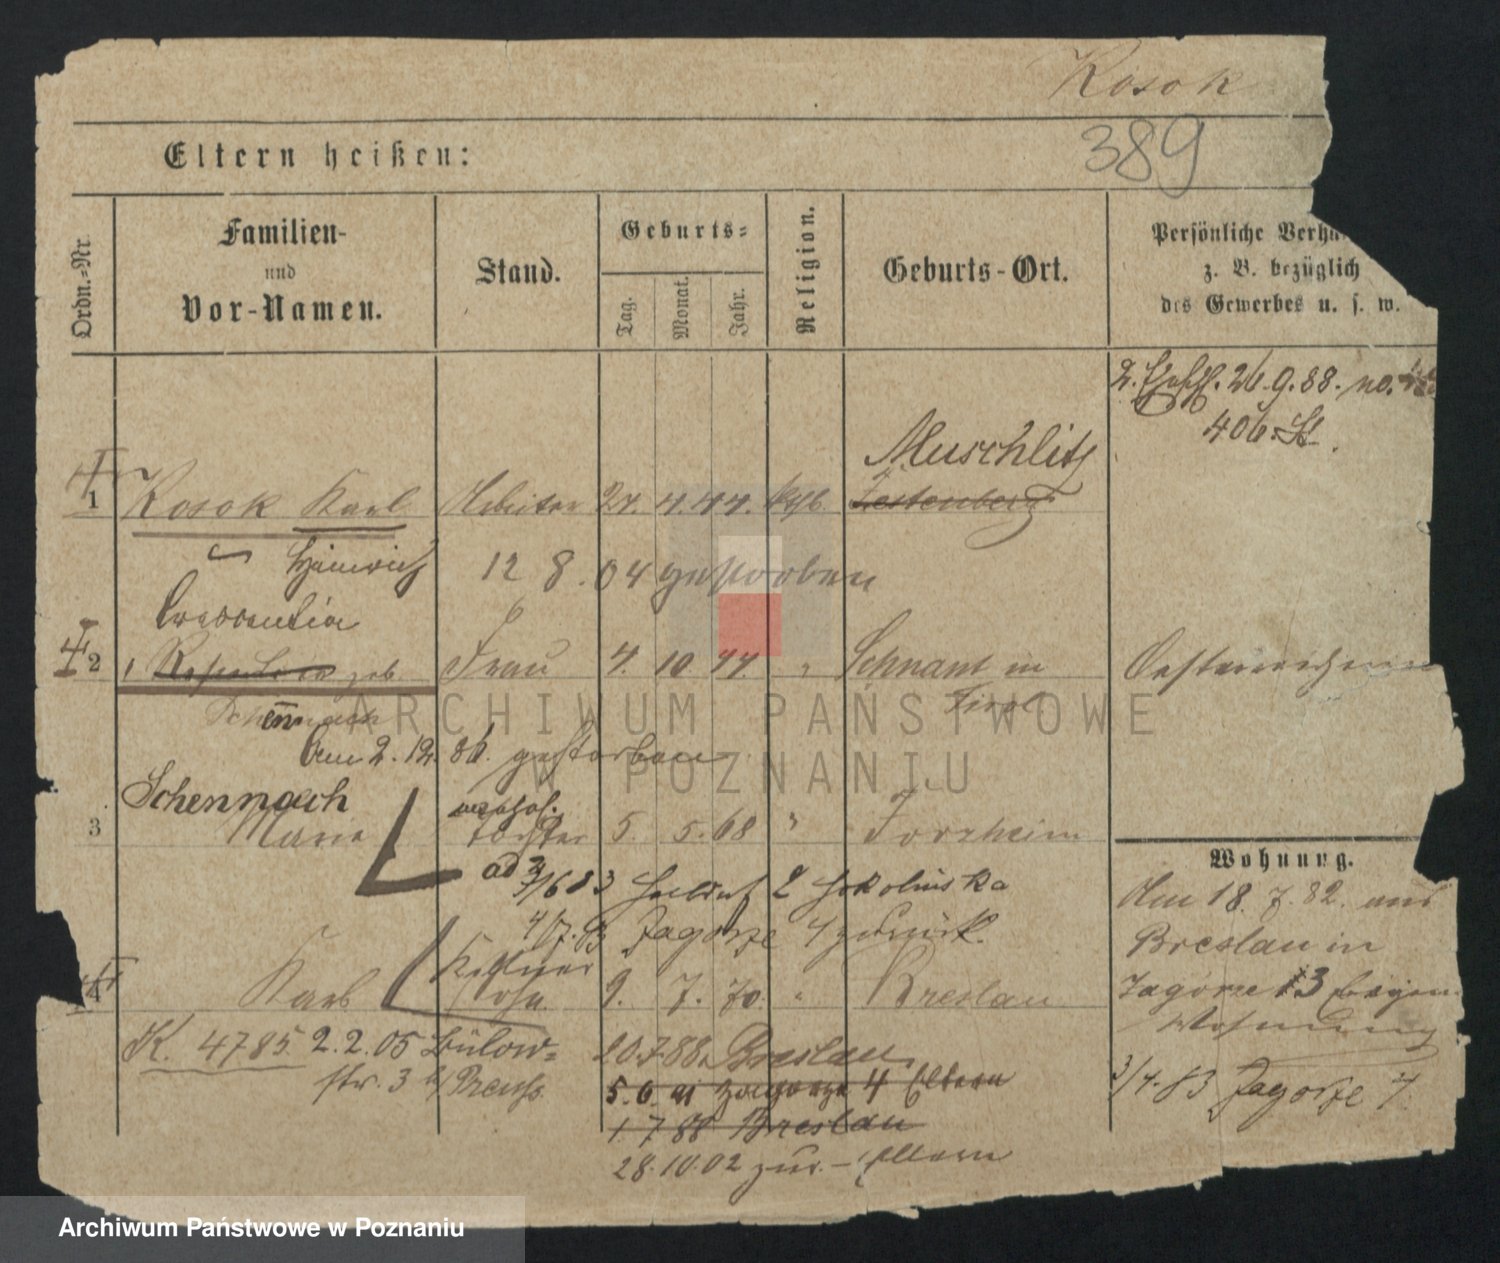 Kosok
389
Eltern heißen:
Ordn.=Nr.
Familien-
und
Vor-Namen.
Stand.
Geburts=
Tag.
Monat.
Jahr.
Religion.
Geburts-Ort.
Persönliche Verhä
z. B. bezüglich
des Gewerbes u. s. w.
26.9.88. no.
406
Muschlitz
1 Kosok Karl Arbeiter 24. 4. 44. kth. Festenberg
Heinrich 12 8. 04 gestorben
Crescentia
2 geb. Frau 4. 10. 44. " Schnant in Oesterreicherin
Schennach Tirol
Am 2. 12. 86. gestorben
Schennach
3 Marie Tochter 5. 5. 68 " Forzheim
Wohnung.
2 Sokolniska
Am 18. 7. 82. aus
4/7. 83 Jagorze 4 zurück.
Breslau in
Kellner
4 Karl Sohn. 9. 7. 70. " Breslau
Jagorze 13 eigen.
Wohnung
K. 4785 2. 2. 05 Bülow=
20.7.88. Breslau
str. 3 b/ Preuß.
5. 6. 91 Zagorze 4 Eltern
3/4. 83 Jagorze 4
1 7 88 Breslau
28.10.02 zur. - Eltern
ARCHIWUM PAŃSTWOWE
W POZNANIU
Archiwum Państwowe w Poznaniu